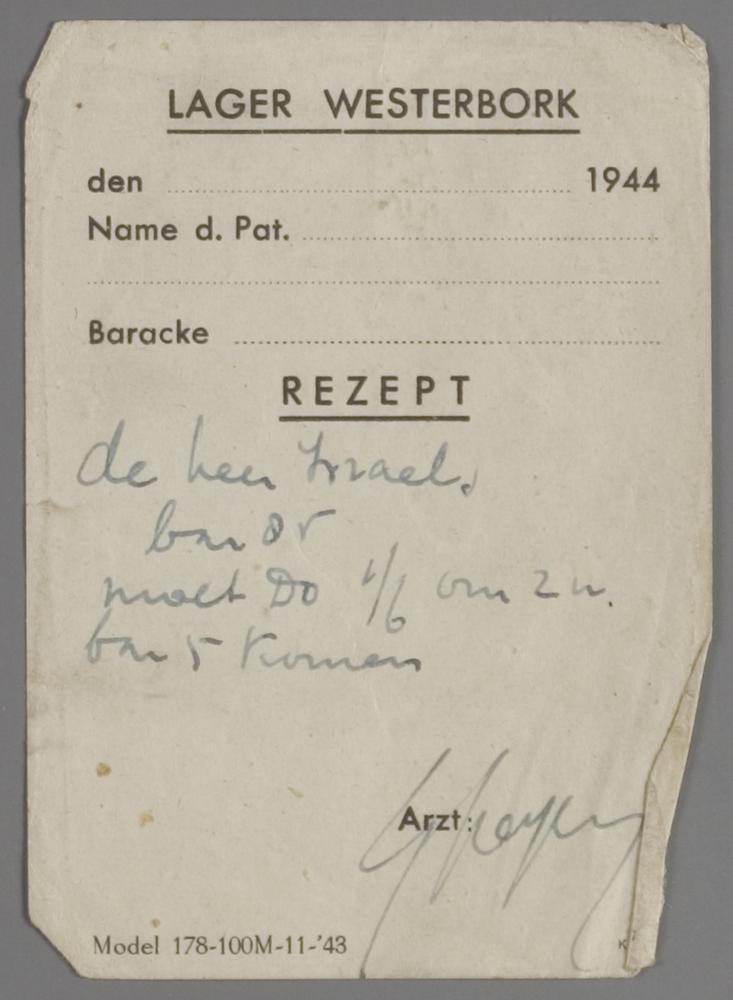 LAGER WESTERBORK
den 1944
Name d. Pat.
Baracke
REZEPT
de heer Israels
bar 85
moet Do 1/6 om 2 u.
bar 5 komen
Arzt:
Model 178-100M-11-'43
K